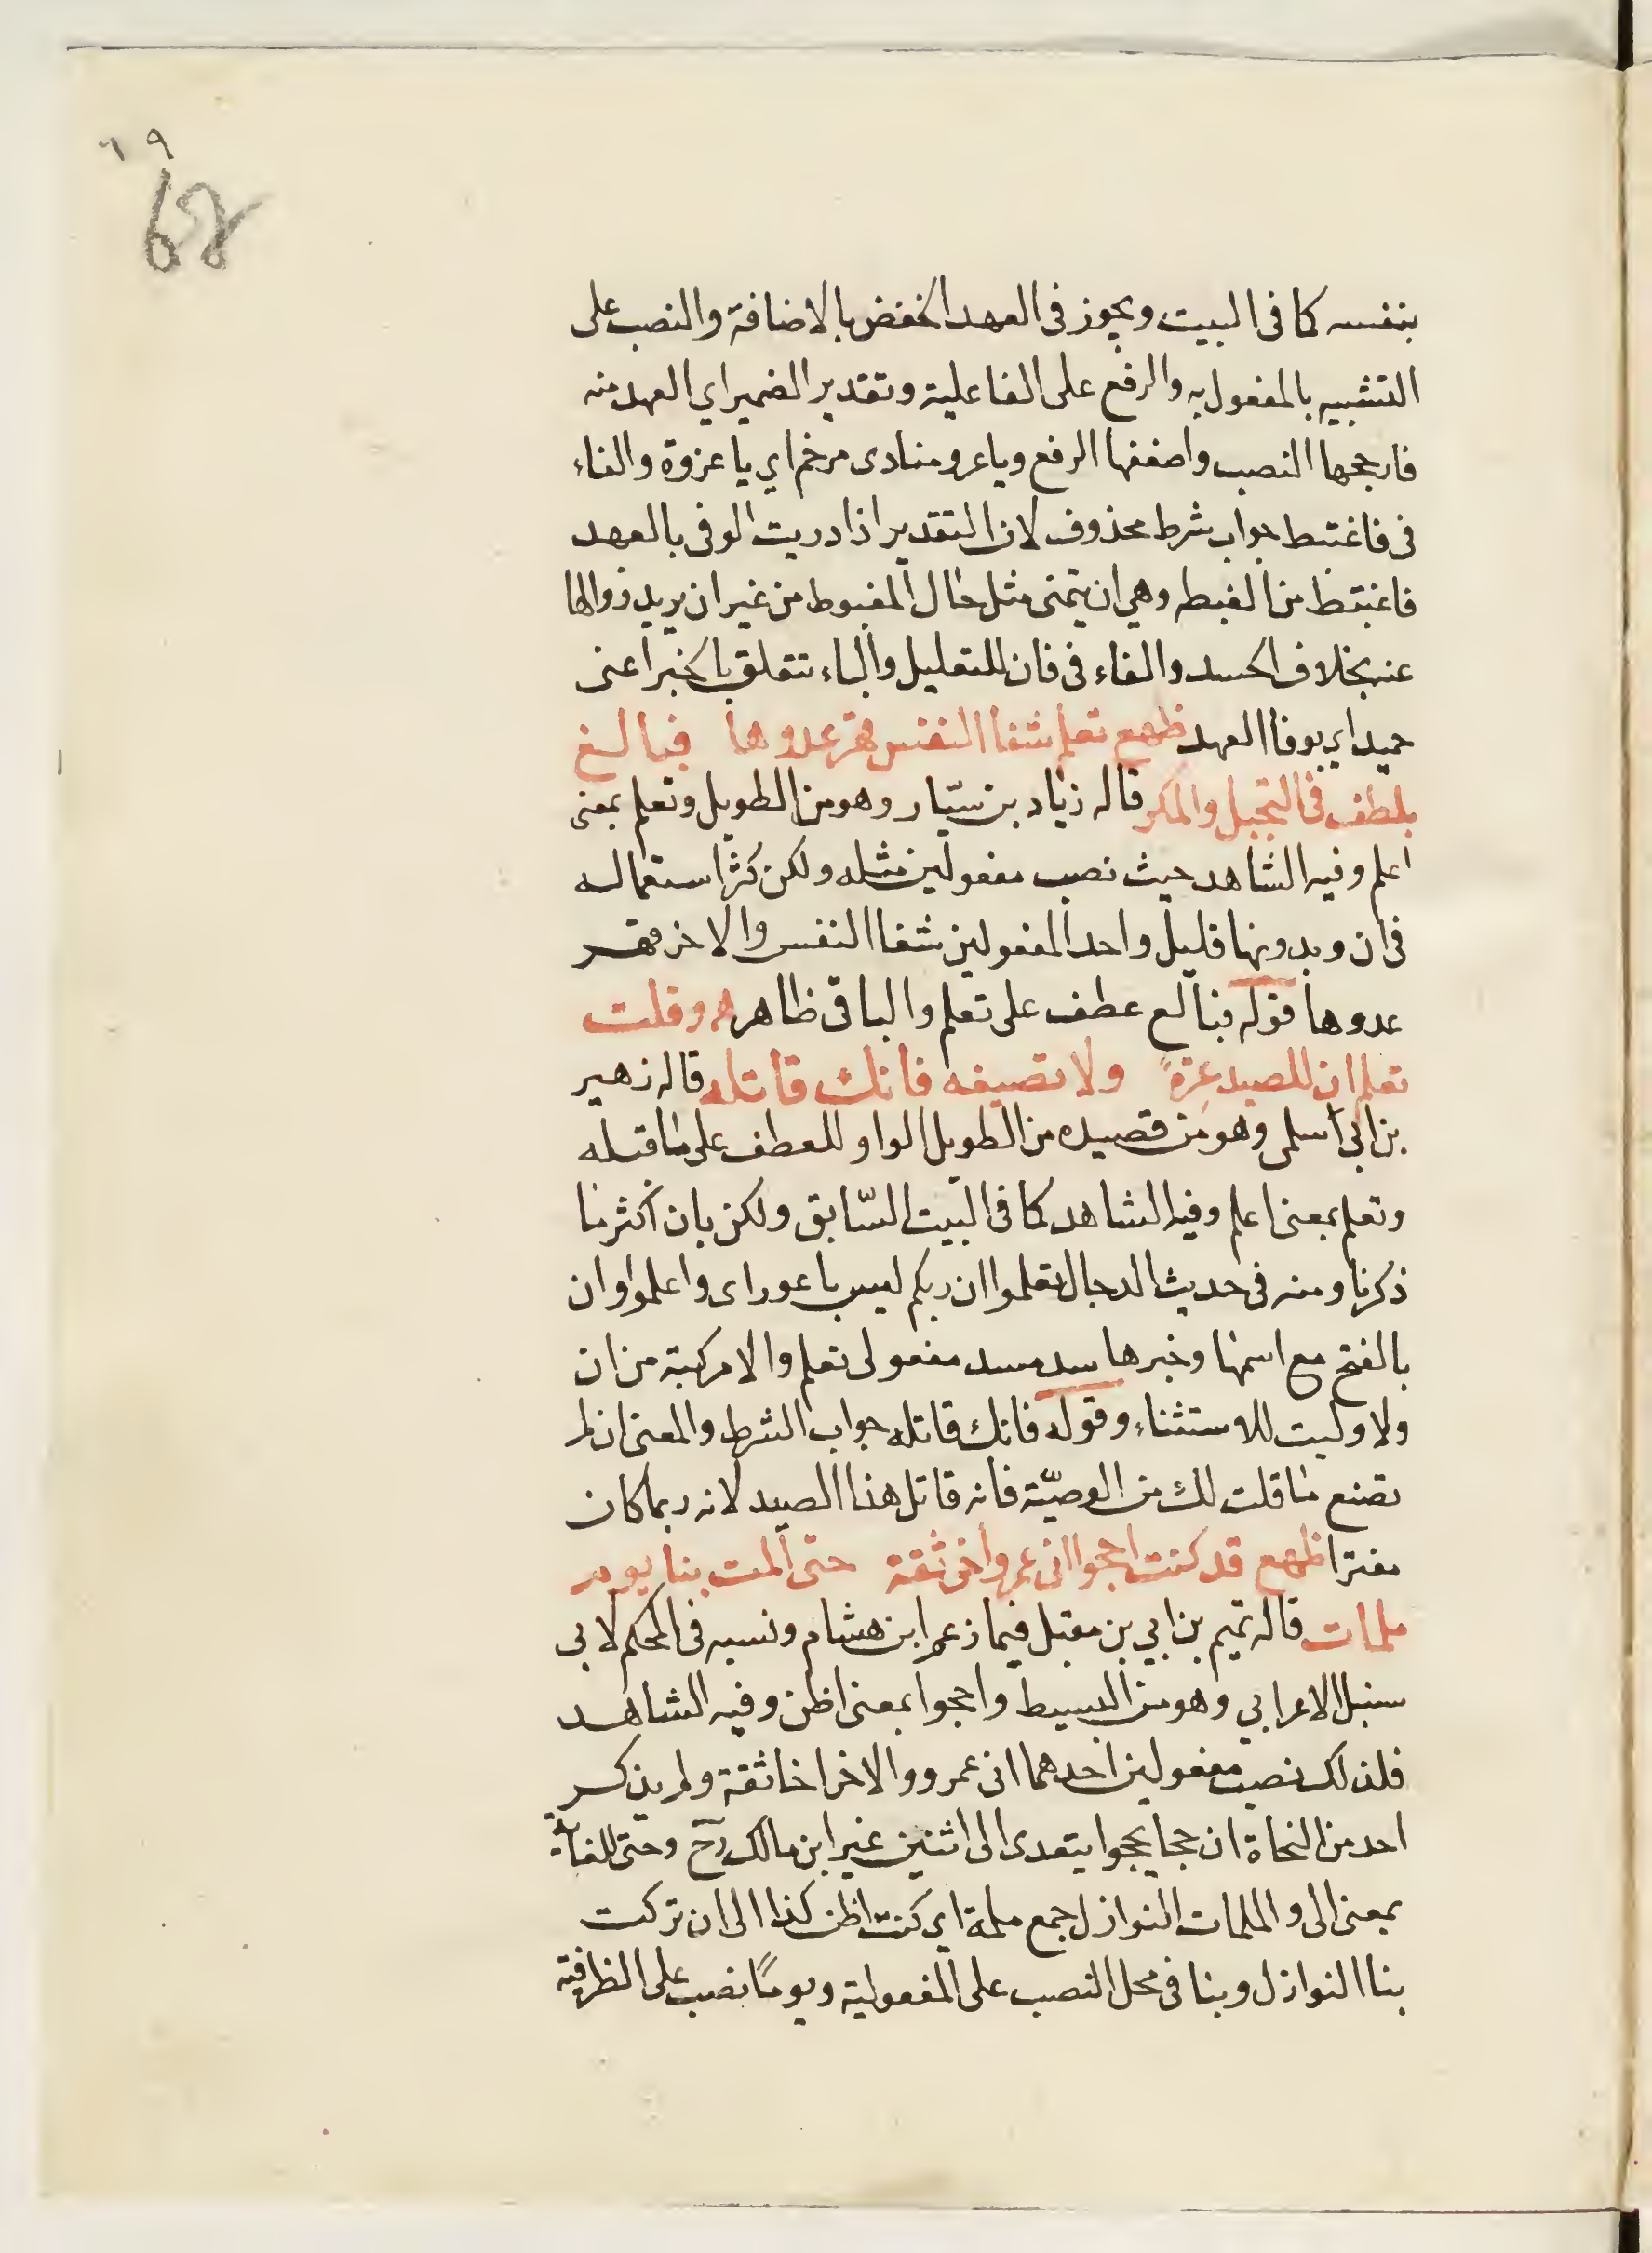 ٦٩
68
بنفسه كما فى البيت ويجوز فى العهد الخفض بالاضافة والنصب على
التشبيه بالمفعول به والرفع على الفاعلية وتقدير الضمير اي العهد منه
فارجحها النصب واضعفها الرفع وياعرو منادى مرخم اي يا عروة والفاء
فى فاغتبط جواب شرط محذوف لان التقدير اذا دريت الوفى بالعهد
فاغتبط من الغبطه وهي ان يتمنى مثل حال المغبوط من غير ان يريد زوالها
عنه بخلاف الحسد والفاء فى فان للتعليل والباء تتعلق بالخبر اعنى
حميد اي بوفا العهد ظهع تعلم شفا النفس قهر عدوها فبالغ
بلطف فى التحيل والمكر قاله زياد بن سيّار وهو من الطويل وتعلم بمعنى
اعلم وفيه الشاهد حيث نصب مفعولين مثله ولكن كثر استعماله
فى ان وبدونها قليل واحد المفعولين شفا النفس والاخر قهر
عدوها قوله فبالغ عطف على تعلم والباقى ظاهر ه وقلت
تعلم ان للصيد غرةً ولا تضيعه فانك قاتله قاله زهير
بن ابى اسلمى وهو من قصيده من الطويل الواو للعطف على ما قبله
وتعلم بمعنى اعلم وفيه الشاهد كما فى البيت السّابق ولكن بان اكثر ما
ذكرنا ومنه فى حديث الدجال تعلموا ان ربكم ليس باعور اى واعلموا وان
بالفتح مع اسمها وخبرها سد مسد مفعولى تعلم والا مركبة من ان
ولا وليت للاستثناء وقوله فانك قاتله جواب الشرط والمعنى ان لم
تصنع ما قلت لك من الوصيّة فانه قاتل هذا الصيد لانه ربما كان
مغترا ظهع قد كنت احجوا انى عمرو اخى ثقة حتى المت بنا يوم
ملمات قاله تميم بن ابي بن مقبل فيما زعم ابن هشام ونسبه فى المحكم لابى
سنبل الاعرابي وهو من البسيط واحجوا بمعنى اظن وفيه الشاهد
فلذلك نصب مفعولين احدهما انى عمرو والاخر اخا ثقة ولم يذكر
احد من النحاة ان حجا يحجوا يتعدى الى اثنين غير ابن مالك رح وحتى للغاية
بمعنى الى والملمات النوازل جمع ملمة اي كنت اظن كذا الى ان تركت
بنا النوازل وبنا فى محل النصب على المفعولية ويومًا نصب على الظرفية